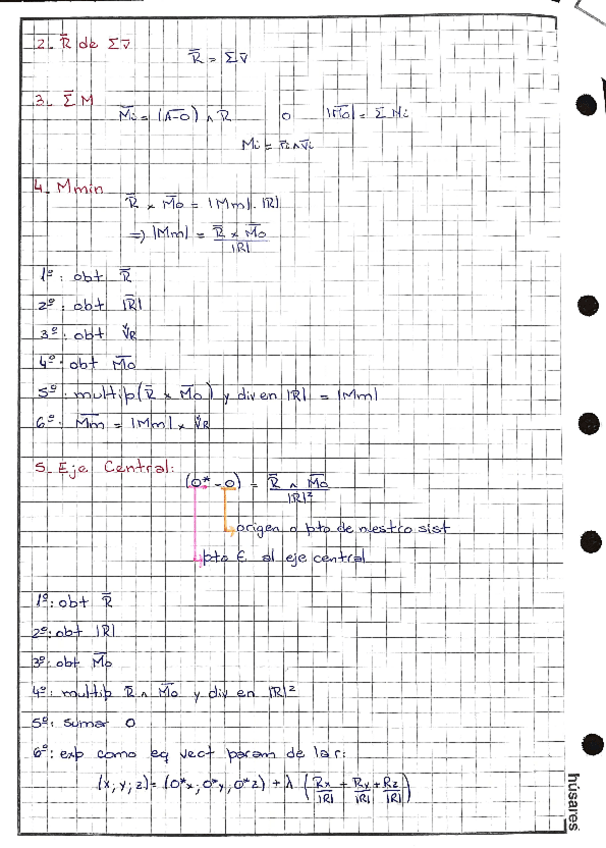 2_ R̄ de Σv̄
R̄ = Σv̄
3_ Σ̄M
M̄i = (A-O) ∧ R̄ o |M̄o| = Σ Mi
Mi = r̄i ∧ v̄i
4_ Mmin
R̄ × M̄o = |Mm|. |R|
⇒ |Mm| = R̄ × M̄o / |R|
1º: obt R̄
2º: obt |R̄|
3º: obt v̌R
4º: obt M̄o
5º: multip (R̄ × M̄o) y div en |R| = |Mm|
6º: M̄m = |Mm| × v̌R
5_ Eje Central:
(O* - O) = R̄ ∧ M̄o / |R|²
origen o pto de nuestro sist
pto ∈ al eje central
1º: obt R̄
2º: obt |R|
3º: obt M̄o
4º: multip R̄ ∧ M̄o y div en |R|²
5º: sumar O
6º: exp como eq vect param de la r:
(x; y; z) = (O*x; O*y; O*z) + λ (Rx/|R| + Ry/|R| + Rz/|R|)
húsares